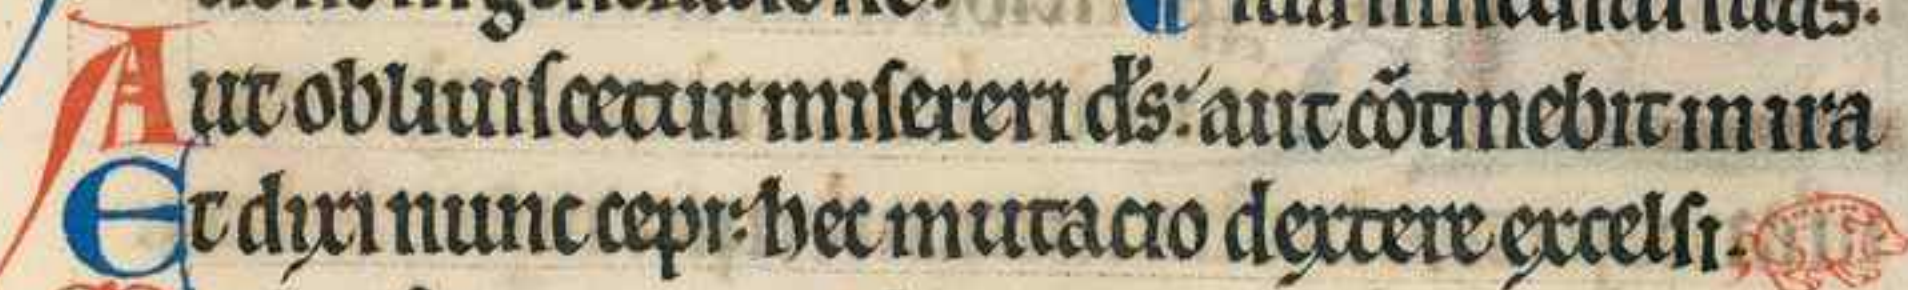 Aut obliuiscetur misereri ds: aut cõtinebit in ira
Et dixi nunc cepi: hec mutacio dextere excelsi.